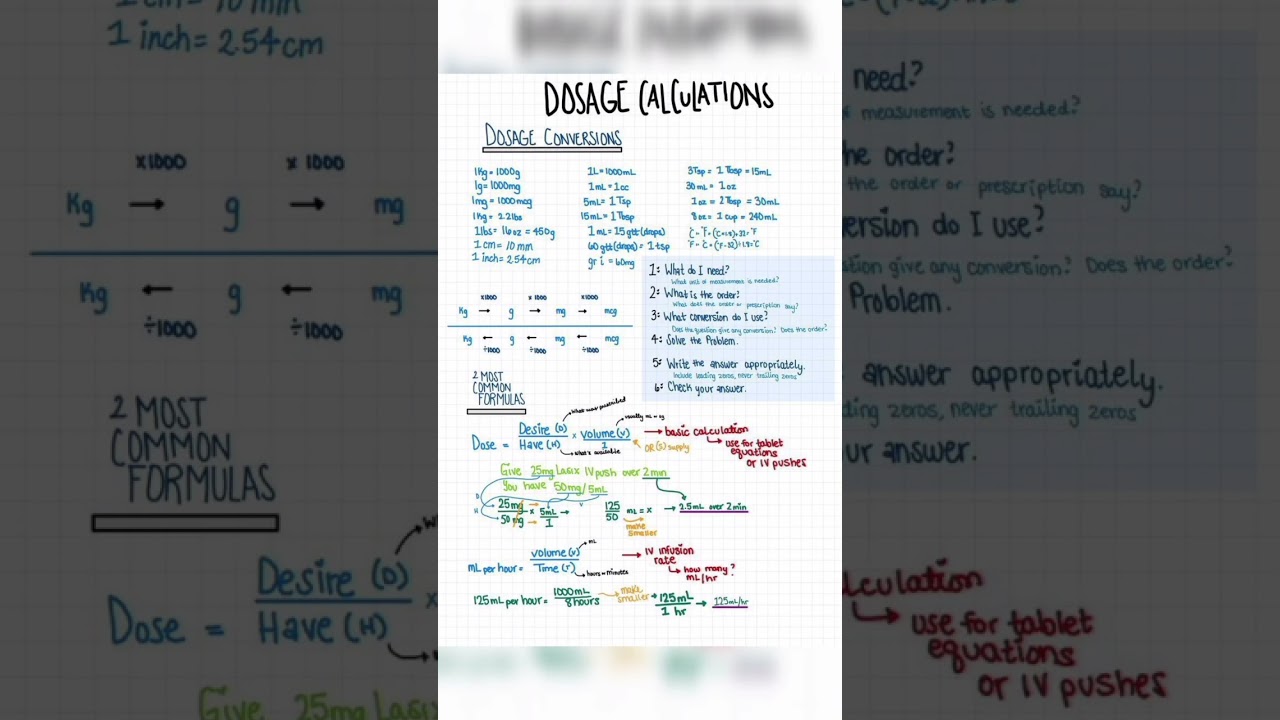 DOSAGE CALCULATIONS
DOSAGE CONVERSIONS
1Kg = 1000g
1g = 1000mg
1mg = 1000mcg
1Kg = 2.2lbs
1lbs = 16oz = 450g
1cm = 10mm
1inch = 2.54cm
1L = 1000mL
1mL = 1cc
5mL = 1Tsp
15mL = 1Tbsp
1mL = 15gtt(drops)
60gtt(drops) = 1tsp
gr i = 60mg
3Tsp = 1Tbsp = 15mL
30mL = 1oz
1oz = 2Tbsp = 30mL
8oz = 1cup = 240mL
x1000 x1000 x1000
Kg → g → mg → mcg
Kg ← g ← mg ← mcg
÷1000 ÷1000 ÷1000
1: What do I need?
What unit of measurement is needed?
2: What is the order?
What does the order or prescription say?
3: What conversion do I use?
Does the question give any conversion? Does the order?
4: Solve the Problem.
5: Write the answer appropriately.
Include leading zeros, never trailing zeros
6: Check your answer.
2 MOST
COMMON
FORMULAS
Dose = Desire (D) / Have (H) x Volume (V) / 1
what was prescribed
what's available
usually mL or
OR (S) supply
→ basic calculation
use for tablet
equations
or IV pushes
Give 25mg Lasix IV push over 2min
You have 50mg/5mL
D
H
V
25mg / 50mg x 5mL / 1 → 125 / 50 mL = x → 2.5mL over 2min
make
smaller
mL per hour = Volume (V) / Time (T)
mL
hours or minutes
→ IV infusion
rate
how many?
mL/hr
125mL per hour = 1000mL / 8hours → make
smaller → 125mL / 1 hr → 125mL/hr